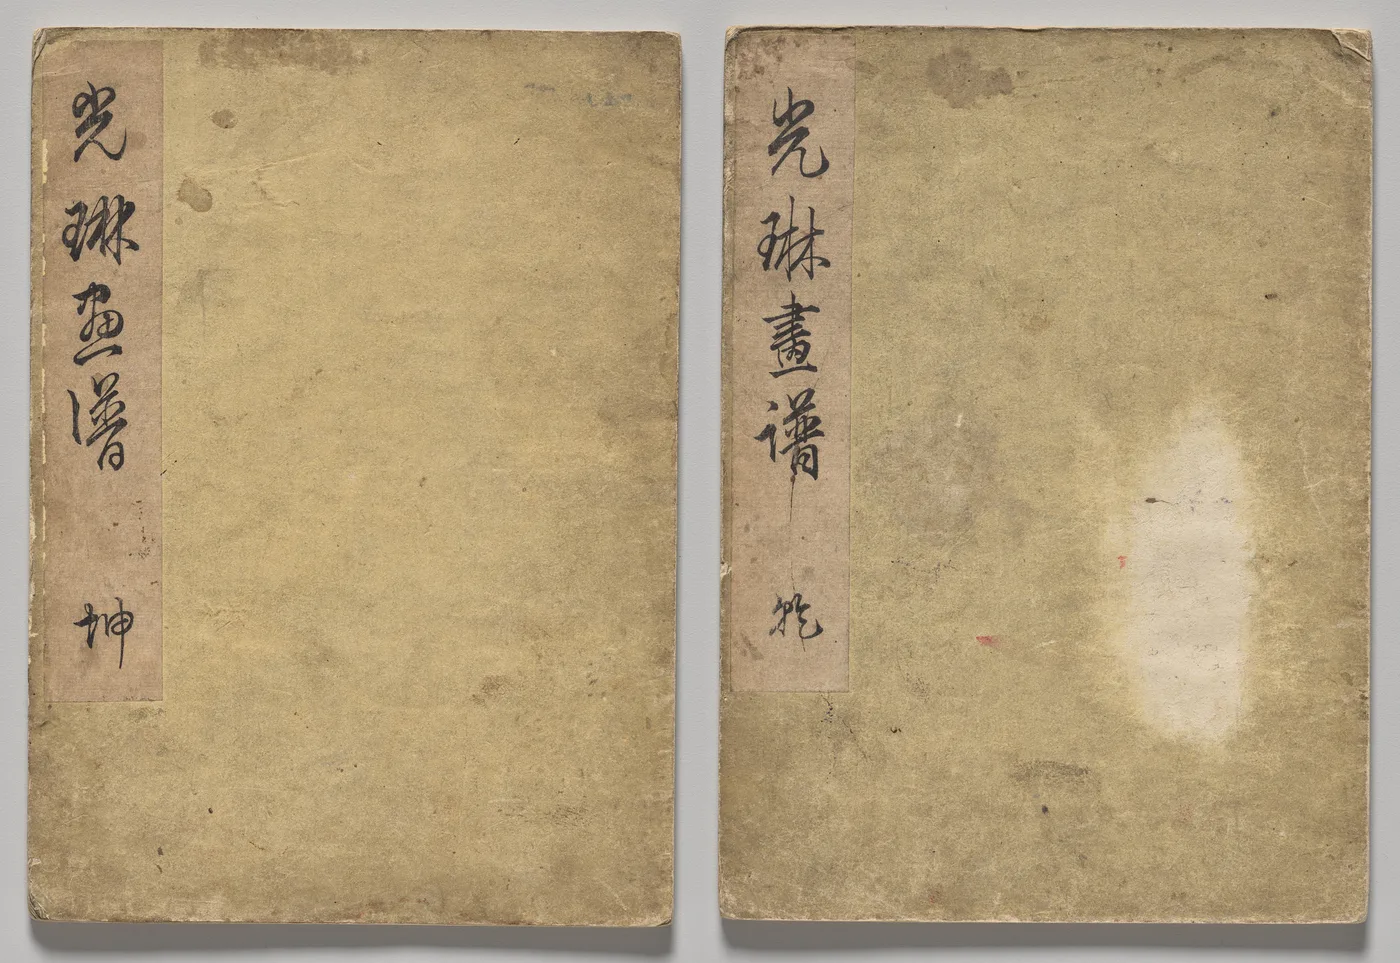 光琳画譜 坤
光琳畫譜 乾